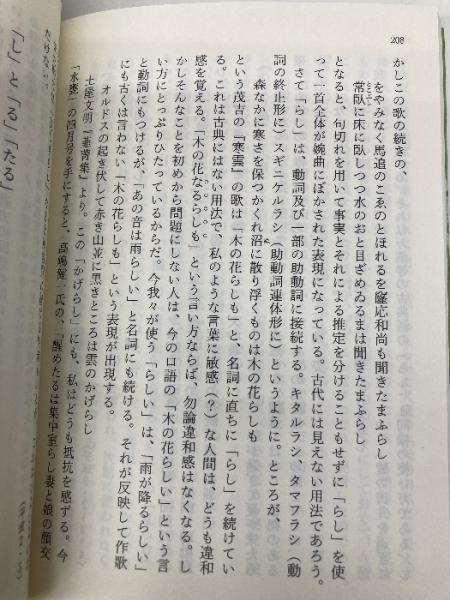 208
かしこの歌の続きの、
をやみなく馬追のこゑのとほれるを慶応和尚も聞きたまふらし
常臥に床に臥しつつ水のおと目ざめゐるまは聞きたまふらし
となると、句切れを用いて事実とそれによる推定を分けることもせずに「らし」を使
って一首全体が婉曲にぼかされた表現になっている。古代には見えない用法であろう。
さて「らし」は、動詞及び一部の助動詞に接続する。キタルラシ、タマフラシ（動
詞の終止形に）スギニケルラシ（助動詞連体形に）というように。ところが、
森なかに寒さを保つかくれ沼に散り浮くものは木の花らしも
という茂吉の『寒雲』の歌は「木の花らしも」と、名詞に直ちに「らし」を続けてい
る。これは古典にはない用法で、私のような言葉に敏感（？）な人間は、どうも違和
感を覚える。「木の花なるらしも」という言い方ならば、勿論違和感はなくなる。し
かしそんなことを初めから問題にしない人は、今の口語の「木の花らしい」という言
い方にとっぷりひたっているからだ。今我々が使う「らしい」は、「雨が降るらしい」
と動詞にもつけるが、「あの音は雨らしい」と名詞にも続ける。それが反映して作歌
にも古くは言わない「木の花らしも」という表現が出現する。
オルドスの起き伏して赤き山並に黒きところは雲のかげらし
土屋文明『韮菁集』より。この「かげらし」にも、私はどうも抵抗を感ずる。今
「水甕」の四月号を手にすると、高嶋健一氏の、「醒めたるは集中室らし妻と娘の顔交
「し」と「る」「たる」